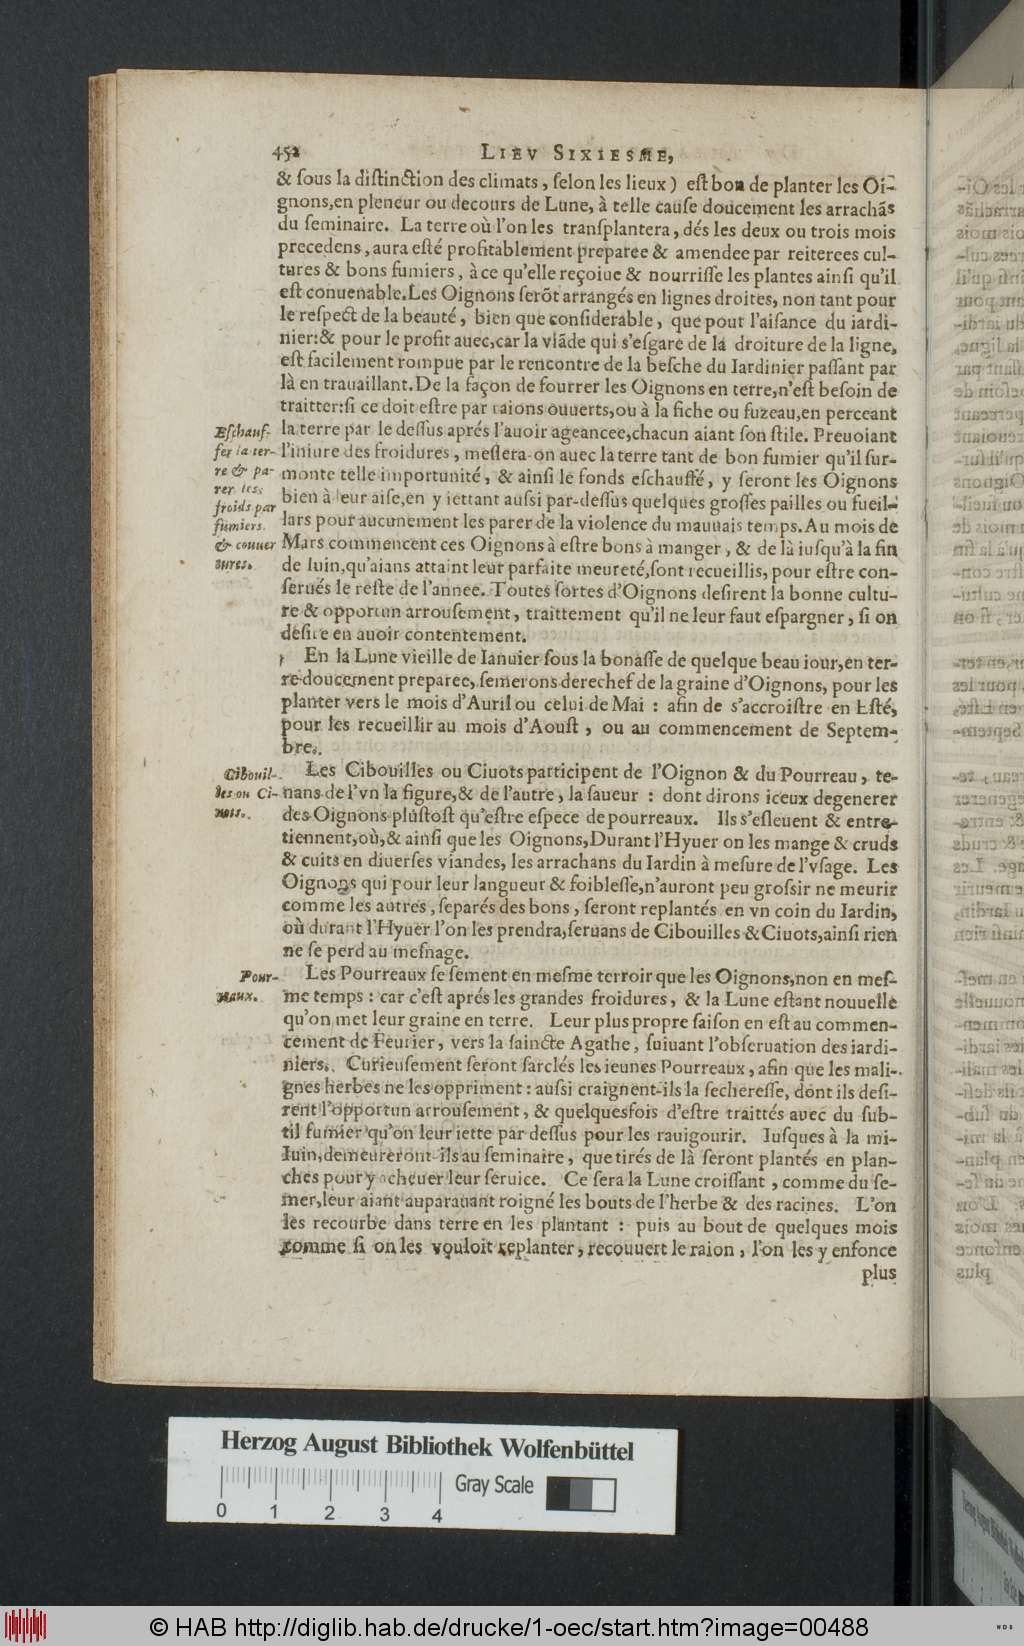 452
LIEV SIXIESME,
& ſous la diſtinction des climats, ſelon les lieux) eſt bon de planter les Oi-
gnons, en pleneur ou decours de Lune, à telle cauſe doucement les arrachãs
du ſeminaire. La terre où l'on les tranſplantera, dés les deux ou trois mois
precedens, aura eſté profitablement preparee & amendee par reiterees cul-
tures & bons fumiers, à ce qu'elle reçoiue & nourriſſe les plantes ainſi qu'il
eſt conuenable. Les Oignons ſerõt arrangés en lignes droites, non tant pour
le reſpect de la beauté, bien que conſiderable, que pout l'aiſance du iardi-
nier: & pour le profit auec, car la viãde qui s'eſgare de la droiture de la ligne,
eſt facilement rompue par le rencontre de la beſche du Iardinier paſſant par
là en trauaillant. De la façon de fourrer les Oignons en terre, n'eſt beſoin de
traitter: ſi ce doit eſtre par raions ouuerts, ou à la fiche ou fuzeau, en perceant
la terre par le deſſus aprés l'auoir ageancee, chacun aiant ſon ſtile. Preuoiant
l'iniure des froidures, meſlera-on auec la terre tant de bon fumier qu'il ſur-
monte telle importunité, & ainſi le fonds eſchauffé, y ſeront les Oignons
bien à leur aiſe, en y iettant auſsi par-deſſus quelques groſſes pailles ou fueil-
lars pour aucunement les parer de la violence du mauuais temps. Au mois de
Mars commencent ces Oignons à eſtre bons à manger, & de là iuſqu'à la fin
de Iuin, qu'aians attaint leur parfaite meureté, ſont recueillis, pour eſtre con-
ſerués le reſte de l'annee. Toutes ſortes d'Oignons deſirent la bonne cultu-
re & opportun arrouſement, traittement qu'il ne leur faut eſpargner, ſi on
deſire en auoir contentement.
Eſchauf-
fer la ter-
re & pa-
rer les
froids par
fumiers
& couuer
tures.
En la Lune vieille de Ianuier ſous la bonaſſe de quelque beau iour, en ter-
re doucement preparee, ſemerons derechef de la graine d'Oignons, pour les
planter vers le mois d'Auril ou celui de Mai : afin de s'accroiſtre en Eſté,
pour les recueillir au mois d'Aouſt, ou au commencement de Septem-
bre.
Cibouil-
les ou Ci-
uots.
Les Cibouilles ou Ciuots participent de l'Oignon & du Pourreau, te-
nans de l'vn la figure, & de l'autre, la ſaueur : dont dirons iceux degenerer
des Oignons pluſtoſt qu'eſtre eſpece de pourreaux. Ils s'eſleuent & entre-
tiennent, où, & ainſi que les Oignons, Durant l'Hyuer on les mange & cruds
& cuits en diuerſes viandes, les arrachans du Iardin à meſure de l'vſage. Les
Oignons qui pour leur langueur & foibleſſe, n'auront peu groſsir ne meurir
comme les autres, ſeparés des bons, ſeront replantés en vn coin du Iardin,
où durant l'Hyuer l'on les prendra, ſeruans de Cibouilles & Ciuots, ainſi rien
ne ſe perd au meſnage.
Pour-
reaux.
Les Pourreaux ſe ſement en meſme terroir que les Oignons, non en meſ-
me temps : car c'eſt aprés les grandes froidures, & la Lune eſtant nouuelle
qu'on met leur graine en terre. Leur plus propre ſaiſon en eſt au commen-
cement de Feurier, vers la ſaincte Agathe, ſuiuant l'obſeruation des iardi-
niers. Curieuſement ſeront ſarclés les ieunes Pourreaux, afin que les mali-
gnes herbes ne les oppriment : auſsi craignent-ils la ſechereſſe, dont ils deſi-
rent l'opportun arrouſement, & quelquesfois d'eſtre traittés auec du ſub-
til fumier qu'on leur iette par deſſus pour les rauigourir. Iuſques à la mi-
Iuin, demeureront-ils au ſeminaire, que tirés de là ſeront plantés en plan-
ches pour y acheuer leur ſeruice. Ce ſera la Lune croiſſant, comme du ſe-
mer, leur aiant auparauant roigné les bouts de l'herbe & des racines. L'on
les recourbe dans terre en les plantant : puis au bout de quelques mois
comme ſi on les vouloit replanter, recouuert le raion, l'on les y enfonce
plus
Herzog August Bibliothek Wolfenbüttel
Gray Scale
0 1 2 3 4
© HAB http://diglib.hab.de/drucke/1-oec/start.htm?image=00488